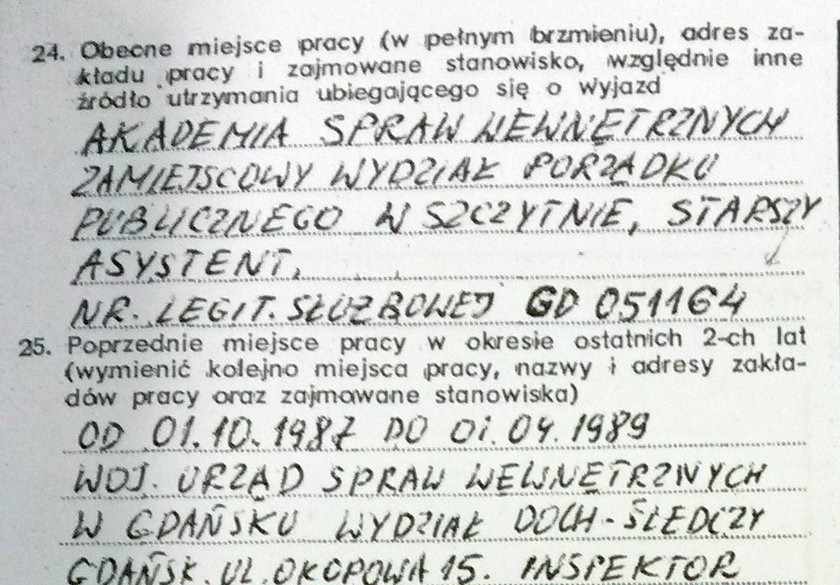 24. Obecne miejsce pracy (w pełnym brzmieniu), adres za-
kładu pracy i zajmowane stanowisko, względnie inne
źródło utrzymania ubiegającego się o wyjazd
AKADEMIA SPRAW WEWNĘTRZNYCH
ZAMIEJSCOWY WYDZIAŁ PORZĄDKU
PUBLICZNEGO W SZCZYTNIE, STARSZY
ASYSTENT,
NR. LEGIT. SŁUŻBOWEJ GD 051164
25. Poprzednie miejsce pracy w okresie ostatnich 2-ch lat
(wymienić kolejno miejsca pracy, nazwy i adresy zakła-
dów pracy oraz zajmowane stanowiska)
OD 01.10.1987 DO 01.04.1989
WOJ. URZĄD SPRAW WEWNĘTRZNYCH
W GDAŃSKU WYDZIAŁ DOCH-ŚLEDCZY
GDAŃSK. UL. OKOPOWA 15. INSPEKTOR